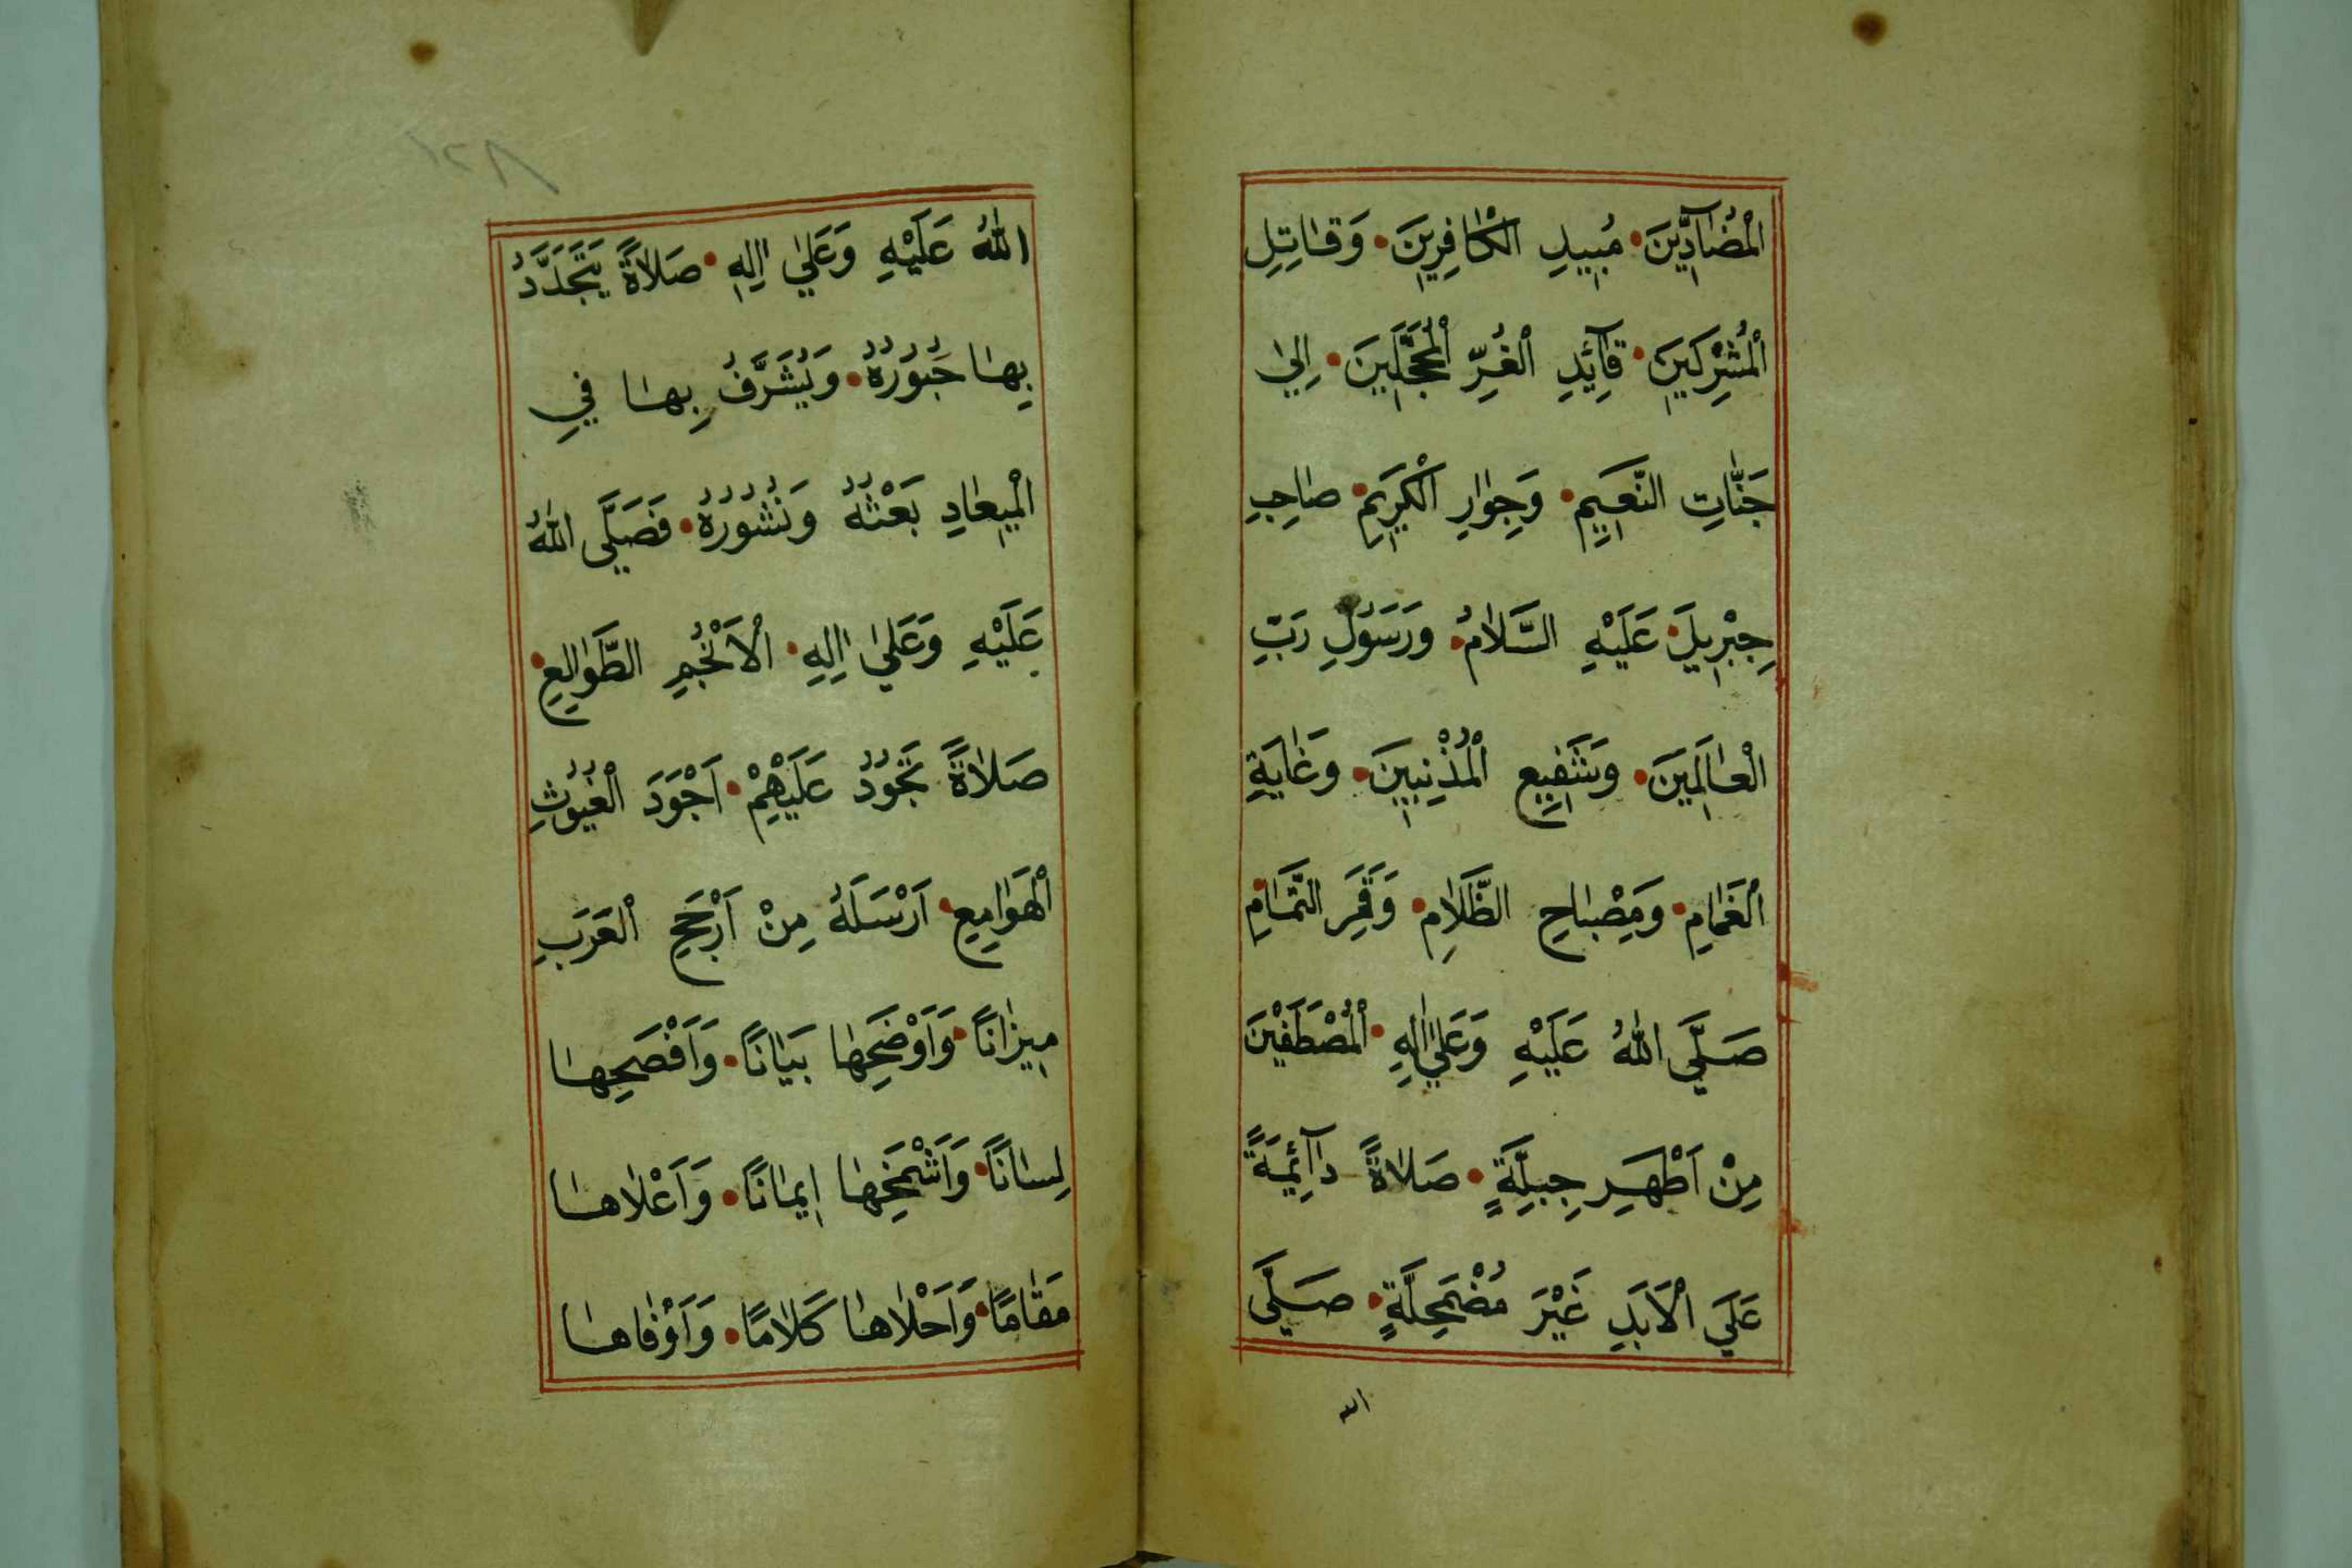 الْمُضَادِّينَ • مُبِيدِ الْكَافِرِينَ • وَقَاتِلِ
الْمُشْرِكِينَ • قَآئِدِ الْغُرِّ الْمُحَجَّلِينَ • اِلٰي
جَنَّاتِ النَّعِيمِ • وَجِوَارِ الْكَرِيمِ • صَاحِبِ
جِبْرِيلَ • عَلَيْهِ السَّلَامُ • وَرَسُولِ رَبِّ
الْعَالَمِينَ • وَشَفِيعِ الْمُذْنِبِينَ • وَغَايَةِ
الْغَمَامِ • وَمِصْبَاحِ الظَّلَامِ • وَقَمَرِ التَّمَامِ •
صَلَّي اللّٰهُ عَلَيْهِ وَعَلٰي اٰلِهِ • الْمُصْطَفَيْنَ
مِنْ اَطْهَرِ جِبِلَّةٍ • صَلَاةً دَآئِمَةً
عَلَي الْاَبَدِ غَيْرَ مُضْمَحِلَّةٍ • صَلَّي
الله
١٢٨
اللّٰهُ عَلَيْهِ وَعَلٰي اٰلِهِ • صَلَاةً يَتَجَدَّدُ
بِهَا حُبُورُهُ • وَيُشَرَّفُ بِهَا فِي
الْمِيعَادِ بَعْثُهُ وَنُشُورُهُ • فَصَلَّي اللّٰهُ
عَلَيْهِ وَعَلٰي اٰلِهِ • الْاَنْجُمِ الطَّوَالِعِ •
صَلَاةً تَجُودُ عَلَيْهِمْ • اَجْوَدَ الْغُيُوثِ
الْهَوَامِعِ • اَرْسَلَهُ مِنْ اَرْجَحِ الْعَرَبِ
مِيزَانًا • وَاَوْضَحِهَا بَيَانًا • وَاَفْصَحِهَا
لِسَانًا • وَاَشْمَخِهَا اِيمَانًا • وَاَعْلَاهَا
مَقَامًا • وَاَحْلَاهَا كَلَامًا • وَاَوْفَاهَا